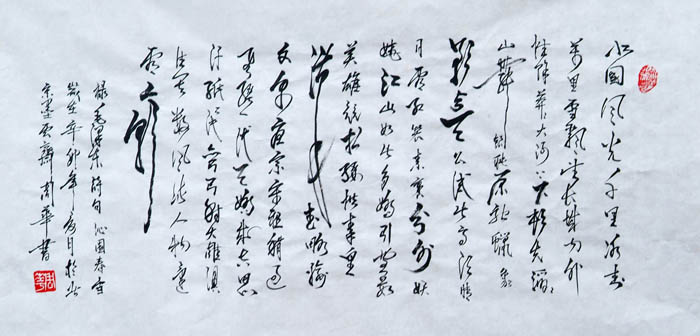 北国风光千里冰封
万里雪飘望长城内外
惟余莽莽大河上下顿失滔滔
山舞银蛇原驰蜡象
欲与天公试比高须晴
日看红装素裹分外妖
娆江山如此多娇引无数
英雄竞折腰惜秦皇
汉武略输
文采唐宗宋祖稍逊
风骚一代天骄成吉思
汗只识弯弓射大雕俱
往矣数风流人物还
看今朝
录毛泽东诗句沁园春雪
岁在辛卯年月于北
京墨云斋周华书